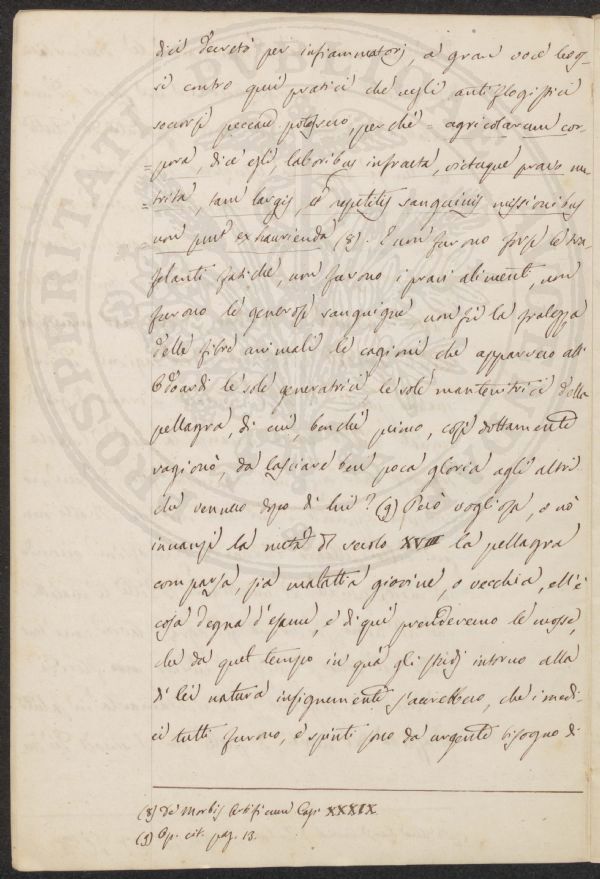 dici decretò per infiammatorj, a gran voce leog-
si contro quei pratici che negli antiflogistici
soccorsi peccare potessero, perchè = agricolarum cor-
= pora, dice egli, laboribus infracta, victuque pravo nu-
= trita, tam largis, et repetitis sanguinis missionibus
non sunt exhaurienda (8). E non furono forse le tra-
felanti fatiche, non furono i pravi alimenti, non
furono le generose sanguigne, non fu la
delle fibre animali le cagioni che apparvero all'
Odoardi le sole generatrici, le sole mantenitrici della
pellagra, di cui, benchè primo, così dottamente
ragionò, da lasciare ben poca gloria agli altri
che vennero dopo di lui? (9) Però vogliosa, o nò
innanzi la metà del secolo XVIII la pellagra
comparsa, sia malattia giovine, o vecchia, ell'è
cosa degna d'esame, e di qui prenderemo le mosse,
che da quel tempo in quà gli studj intorno alla
di lei natura insignemente s'accrebbero, che i medi-
ci tutti furono, e spinti sono da urgente bisogno di
(8) De Morbis Artificum Cap. XXXIX
(9) Op. cit. pag. 13.